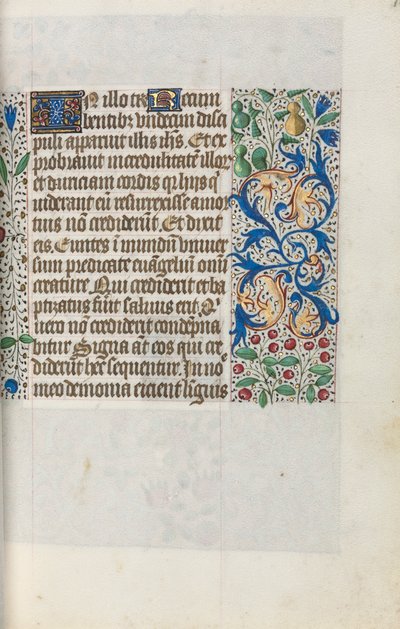 In illo tp̄e Recum
bentibꝫ vndecim disci
pulis apparuit illis ih̄s. Et ex
probrauit incredulitatē illoꝝ
et duriciam cordis qͥ hijs qͥ
uiderant eū resurrexisse a mor
tuis nō crediderūt. Et dixit
eis. Euntes ī mundū vniuer
sum predicate euāgeliū omī
creature. Qui crediderit et ba
ptizatus fūit saluus erit. Qͥ
uero nō crediderit condēpna
bitur. Signa aūt eos qui cre
diderīt hec sequentur. In nō
meo demonia eicient līguis